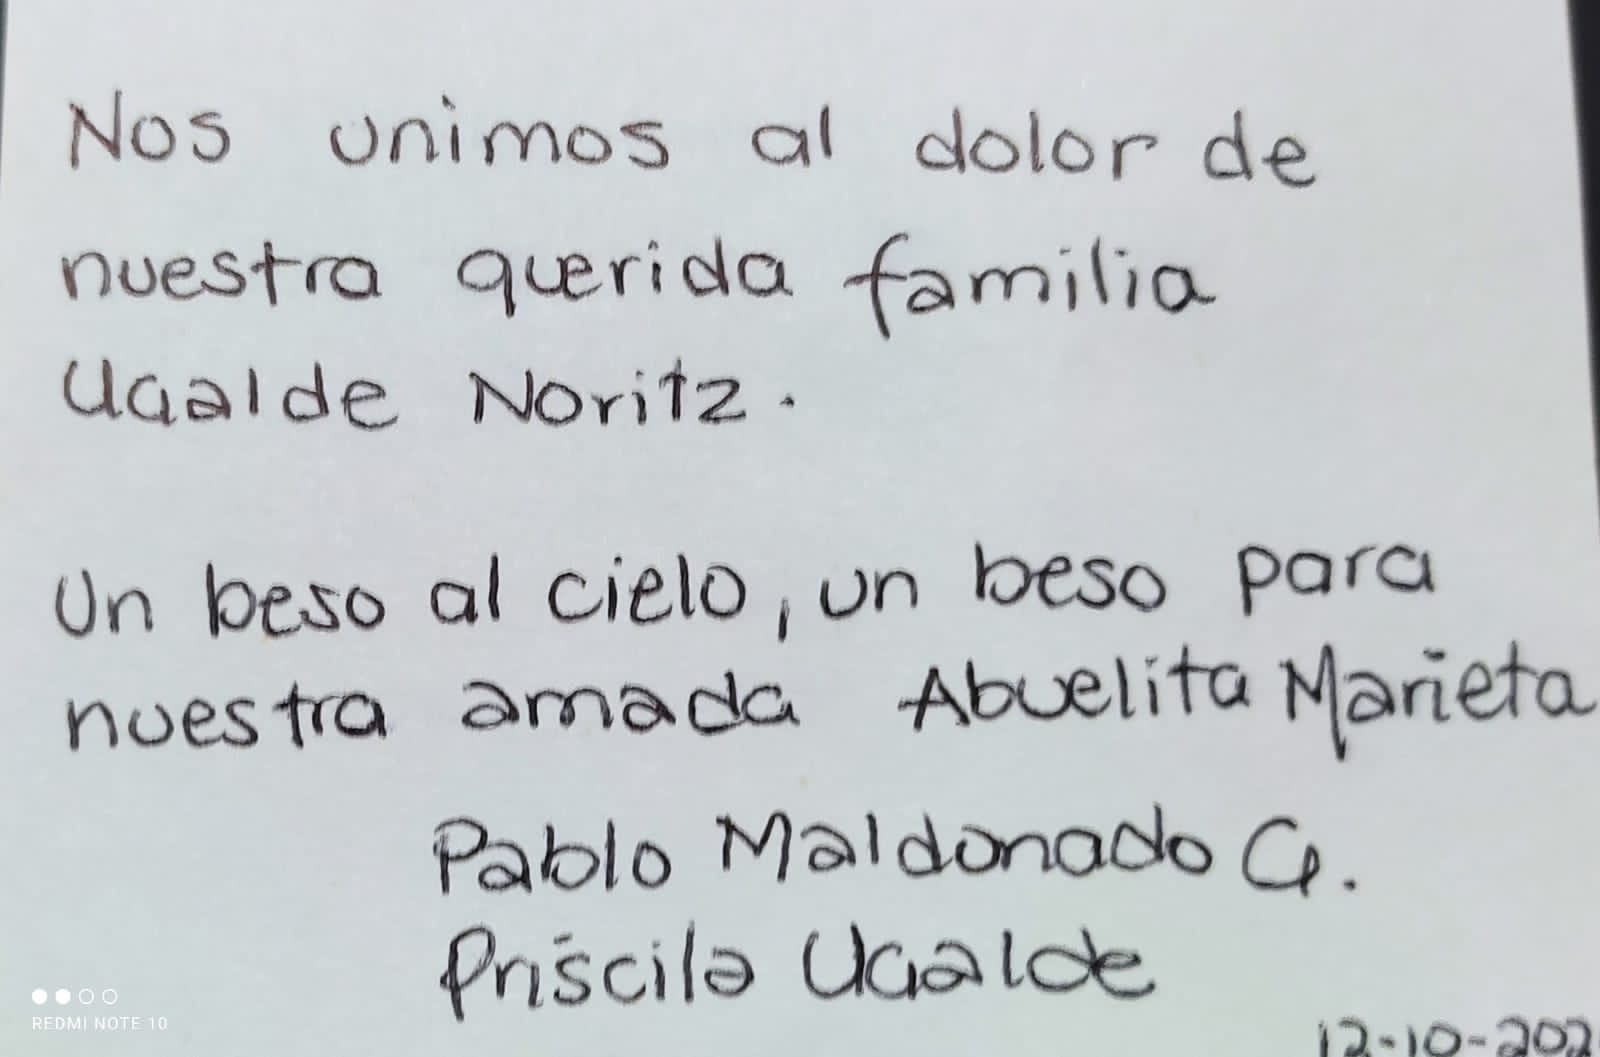 Nos unimos al dolor de
nuestra querida familia
Ugalde Noritz.
Un beso al cielo, un beso para
nuestra amada Abuelita Marieta
Pablo Maldonado G.
Priscila Ugalde
12-10-202
REDMI NOTE 10